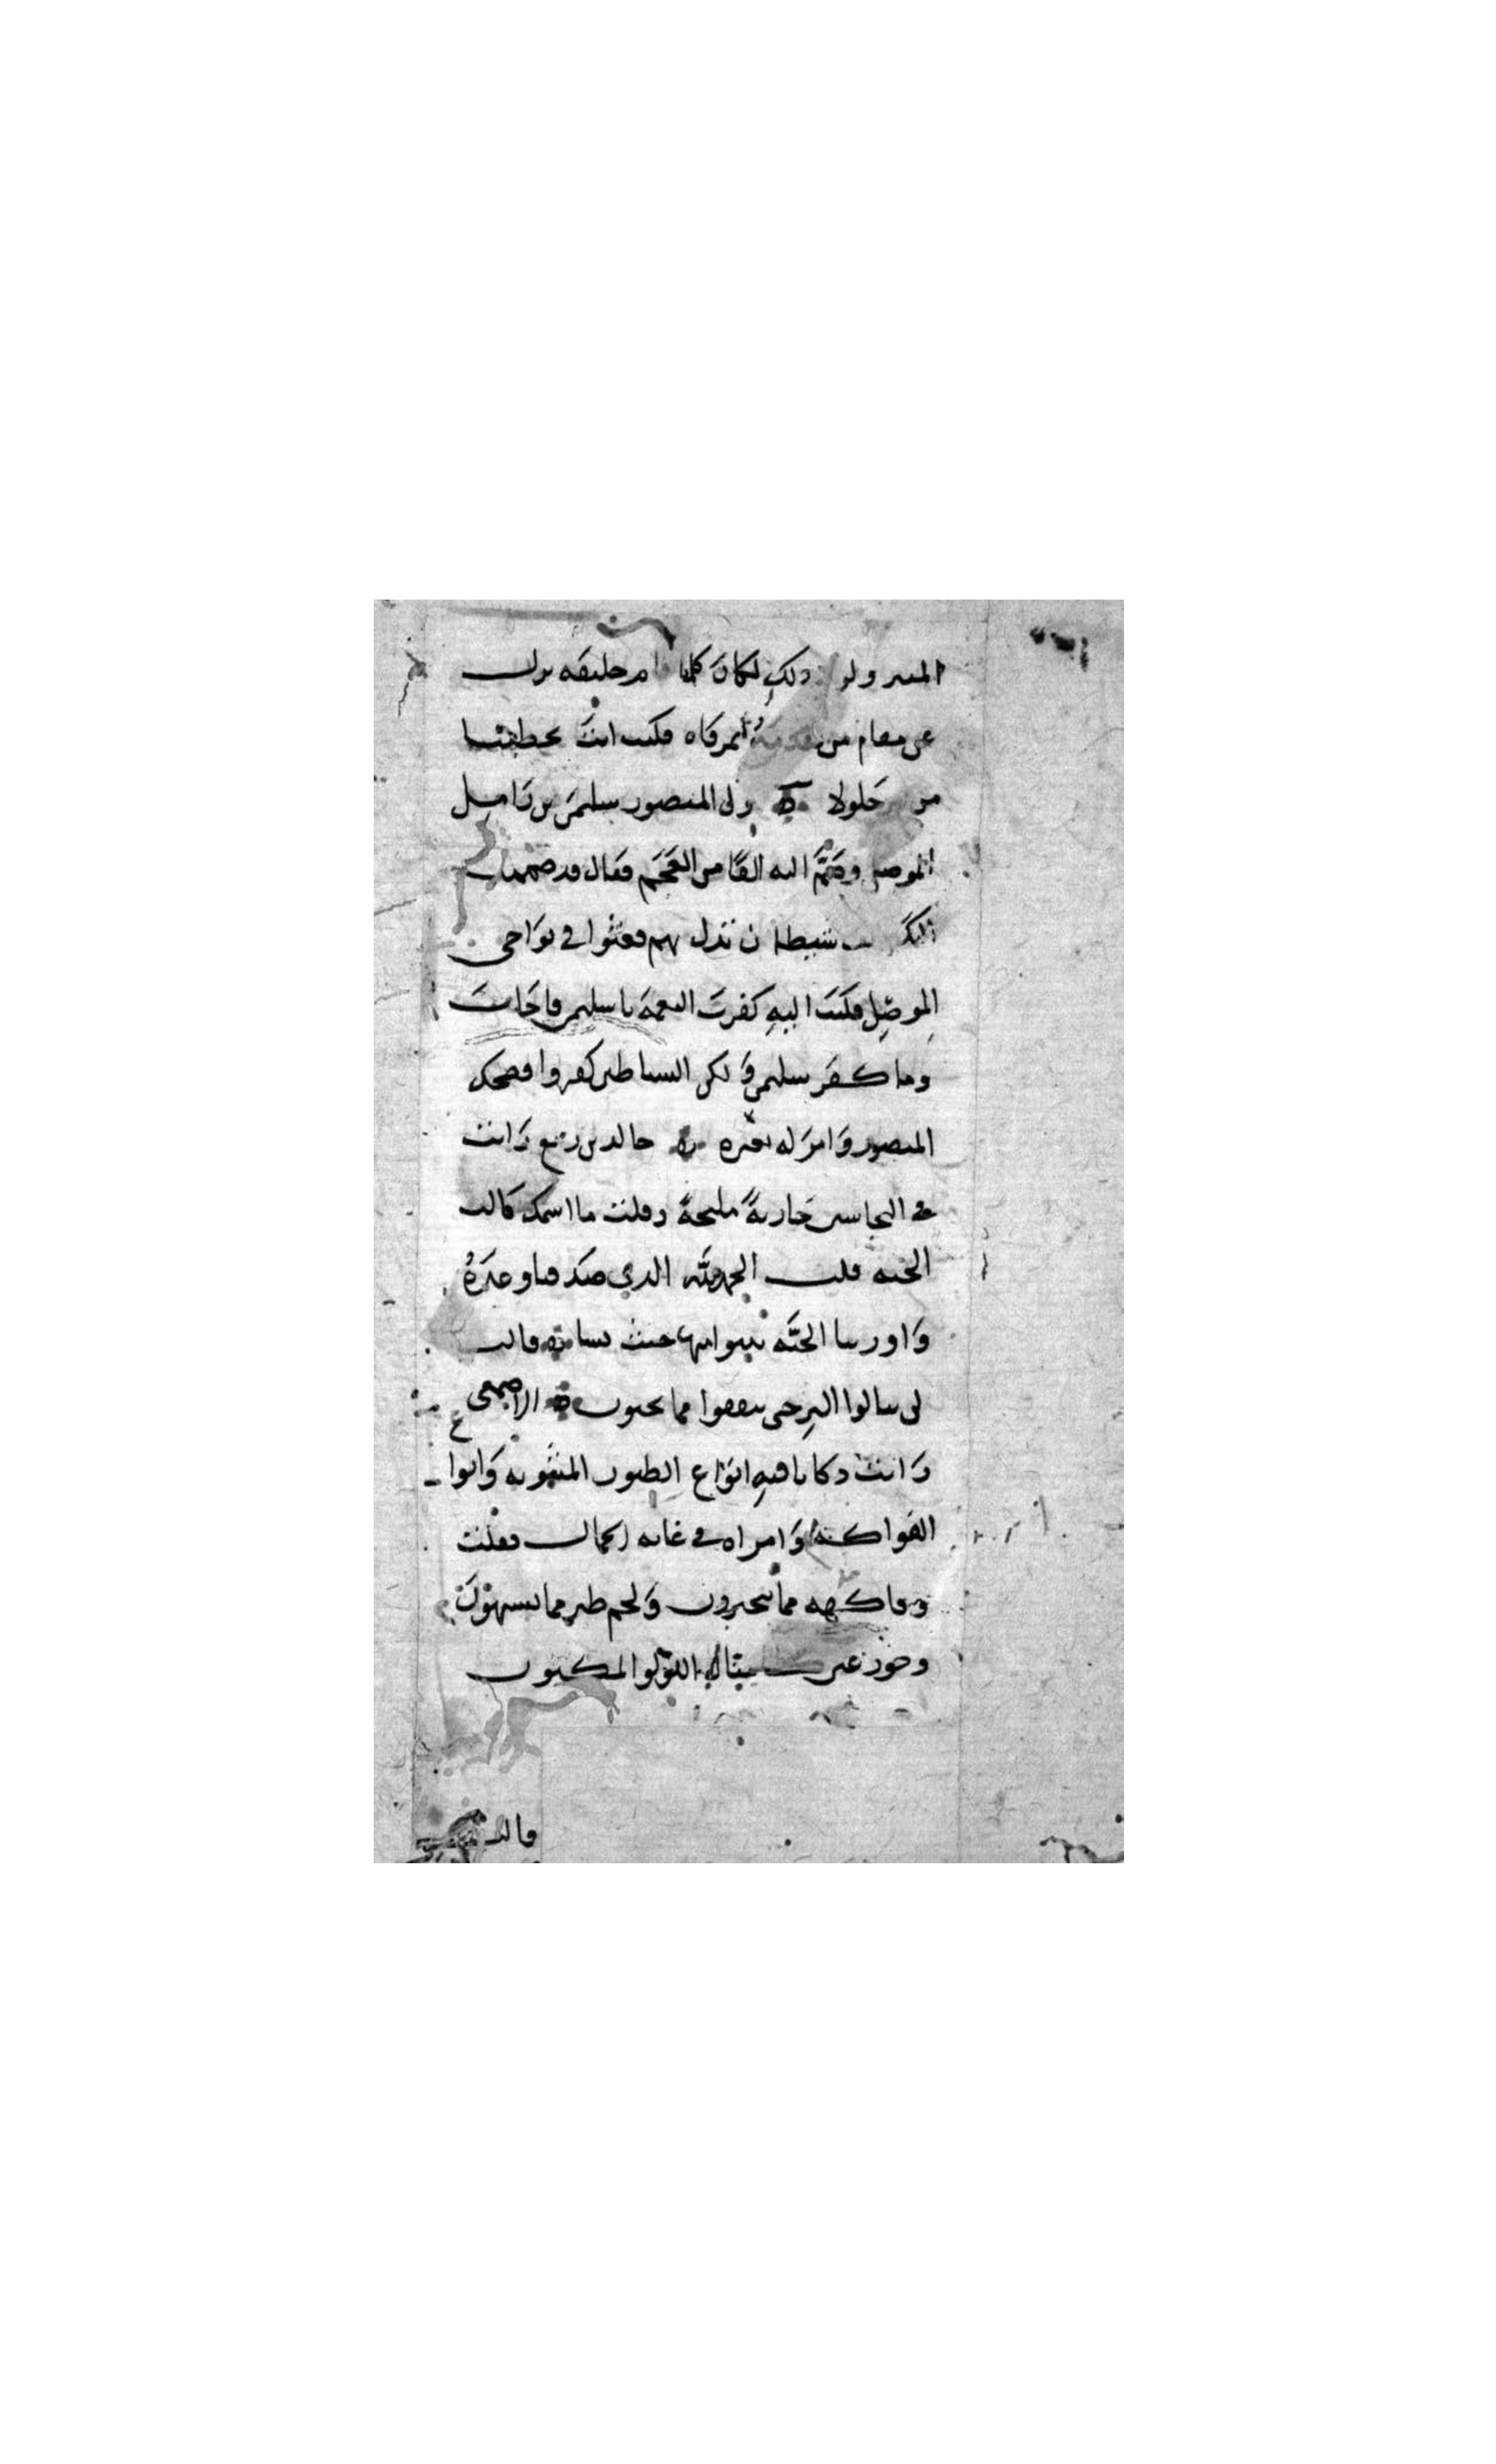 المنبر ولو ذلك لكان كلما خليفه نزل
عن مقام من تقدمه مرقاه فكنت انت تخطبنا
من جلولا ولى المنصور سليمن بن راميل
الموصل وضم اليه الفا من العجم فقال قد ضممت
اليك شيطان تذل بهم فعثوا في نواحي
الموصل فكتب اليه كفرت النعمة يا سليمن فاجاب
وما كفر سليمن ولكن الشياطين كفروا فضحك
المنصور وامر له خالد بن ربيع رايت
في النخاسين جارية مليحة فقلت ما اسمك قالت
الجنه قلت الحمد لله الذي صدقنا وعده
واورثنا الجنه نتبوا منها حيث نشا قالت
لن تنالوا البر حتى تنفقوا مما تحبون الاصمعي
رايت دكانا فيه انواع الطيور المشويه وانوا
الفواكه وامراه في غايه الجمال فقلت
وفاكهه مما يتخيرون ولحم طير مما يشتهون
وحور عين كامثال اللولو المكنون
قالت